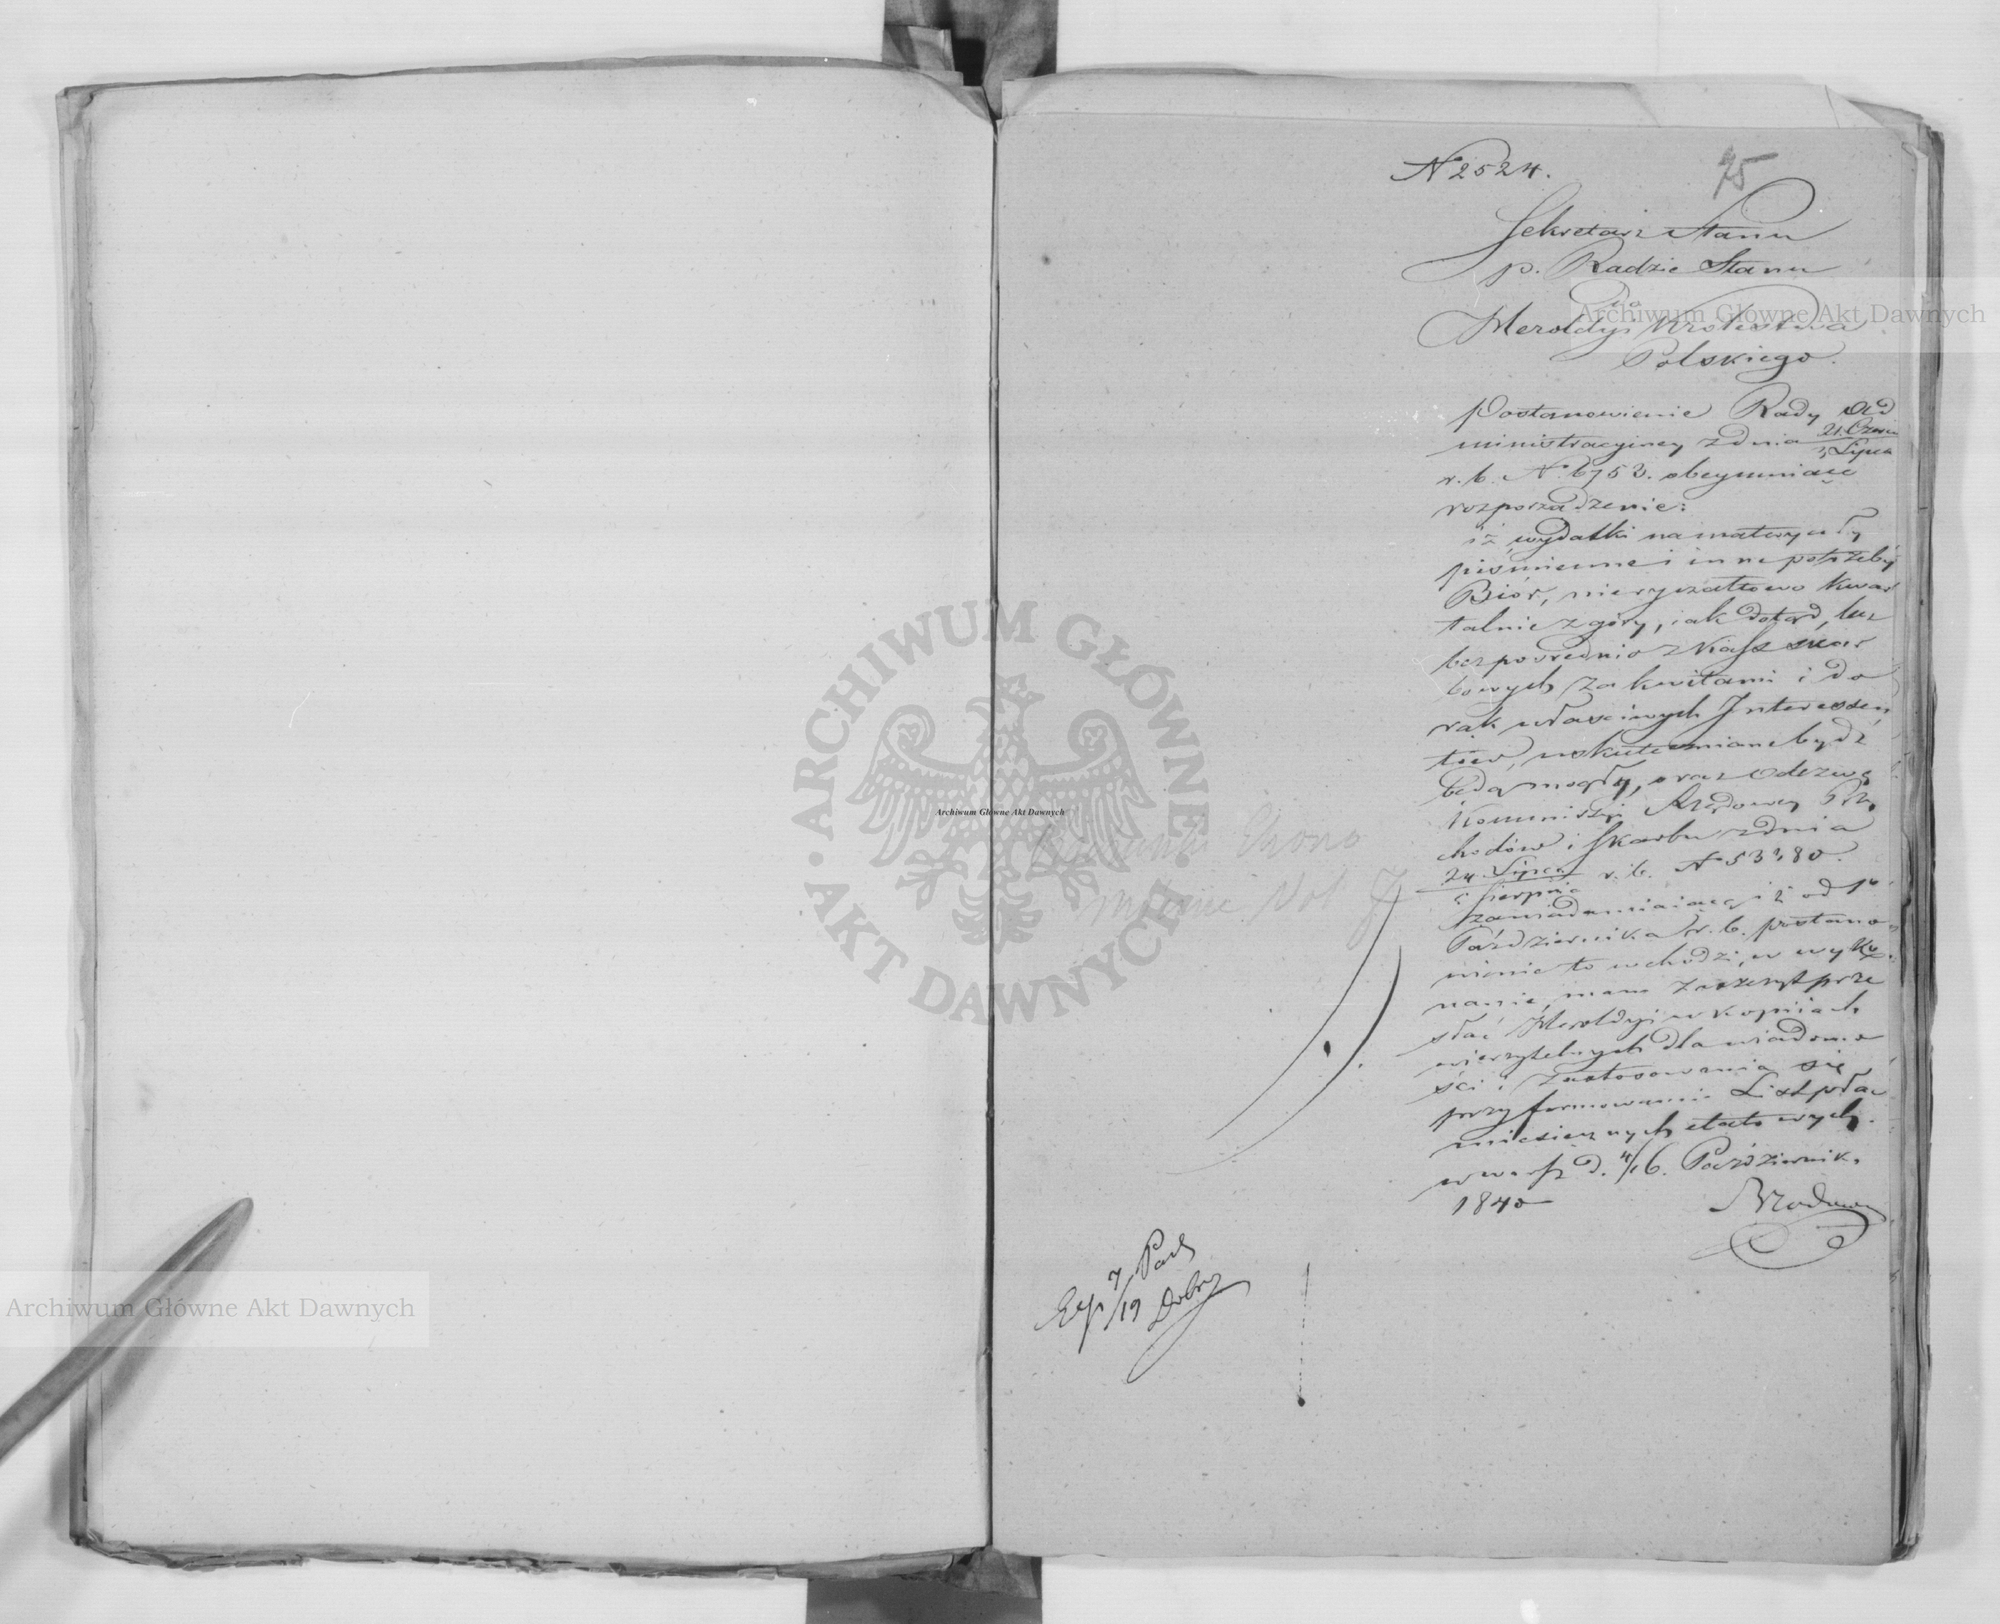 N 2524.
75
Sekretarz Stanu
p. Radzie Stanu
Do
Heroldyi Królestwa
Polskiego.
Postanowienie Rady Ad
ministracyiney z dnia 21 Czerw
3 Lipca
r. b. N. 6753. obeymuiące
rozporządzenie:
iż wydatki na materyały
piśmienne i inne potrzeby
Biór, nieryczałtowo kwar
talnie z góry, iak dotąd, lecz
bezpośrednio z Kass skar
bowych za kwitami i do
rąk właściwych Interessen
tów, uskuteczniane bydź
będą mogły, oraz Odezwę
Kommissyi Rządowey Przy
chodów i Skarbu z dnia
24 Lipca
5 Sierpnia r. b. N 53,80.
zawiadamiaiącą iż od 1o
Października r. b. postano
wienie to wchodzi w wyko
nanie, mam zaszczyt prze
słać Heroldyi w kopiach
wierzytelnych dla wiadomo
ści i zastosowania się
przy formowaniu List płac
miesięcznych etatowych.
w Warsz d. 4/16. Październik.
1840
Exp 7/19 Paź
Dobry
Archiwum Główne Akt Dawnych
Archiwum Główne Akt Dawnych
Archiwum Główne Akt Dawnych
ARCHIWUM GŁÓWNE AKT DAWNYCH